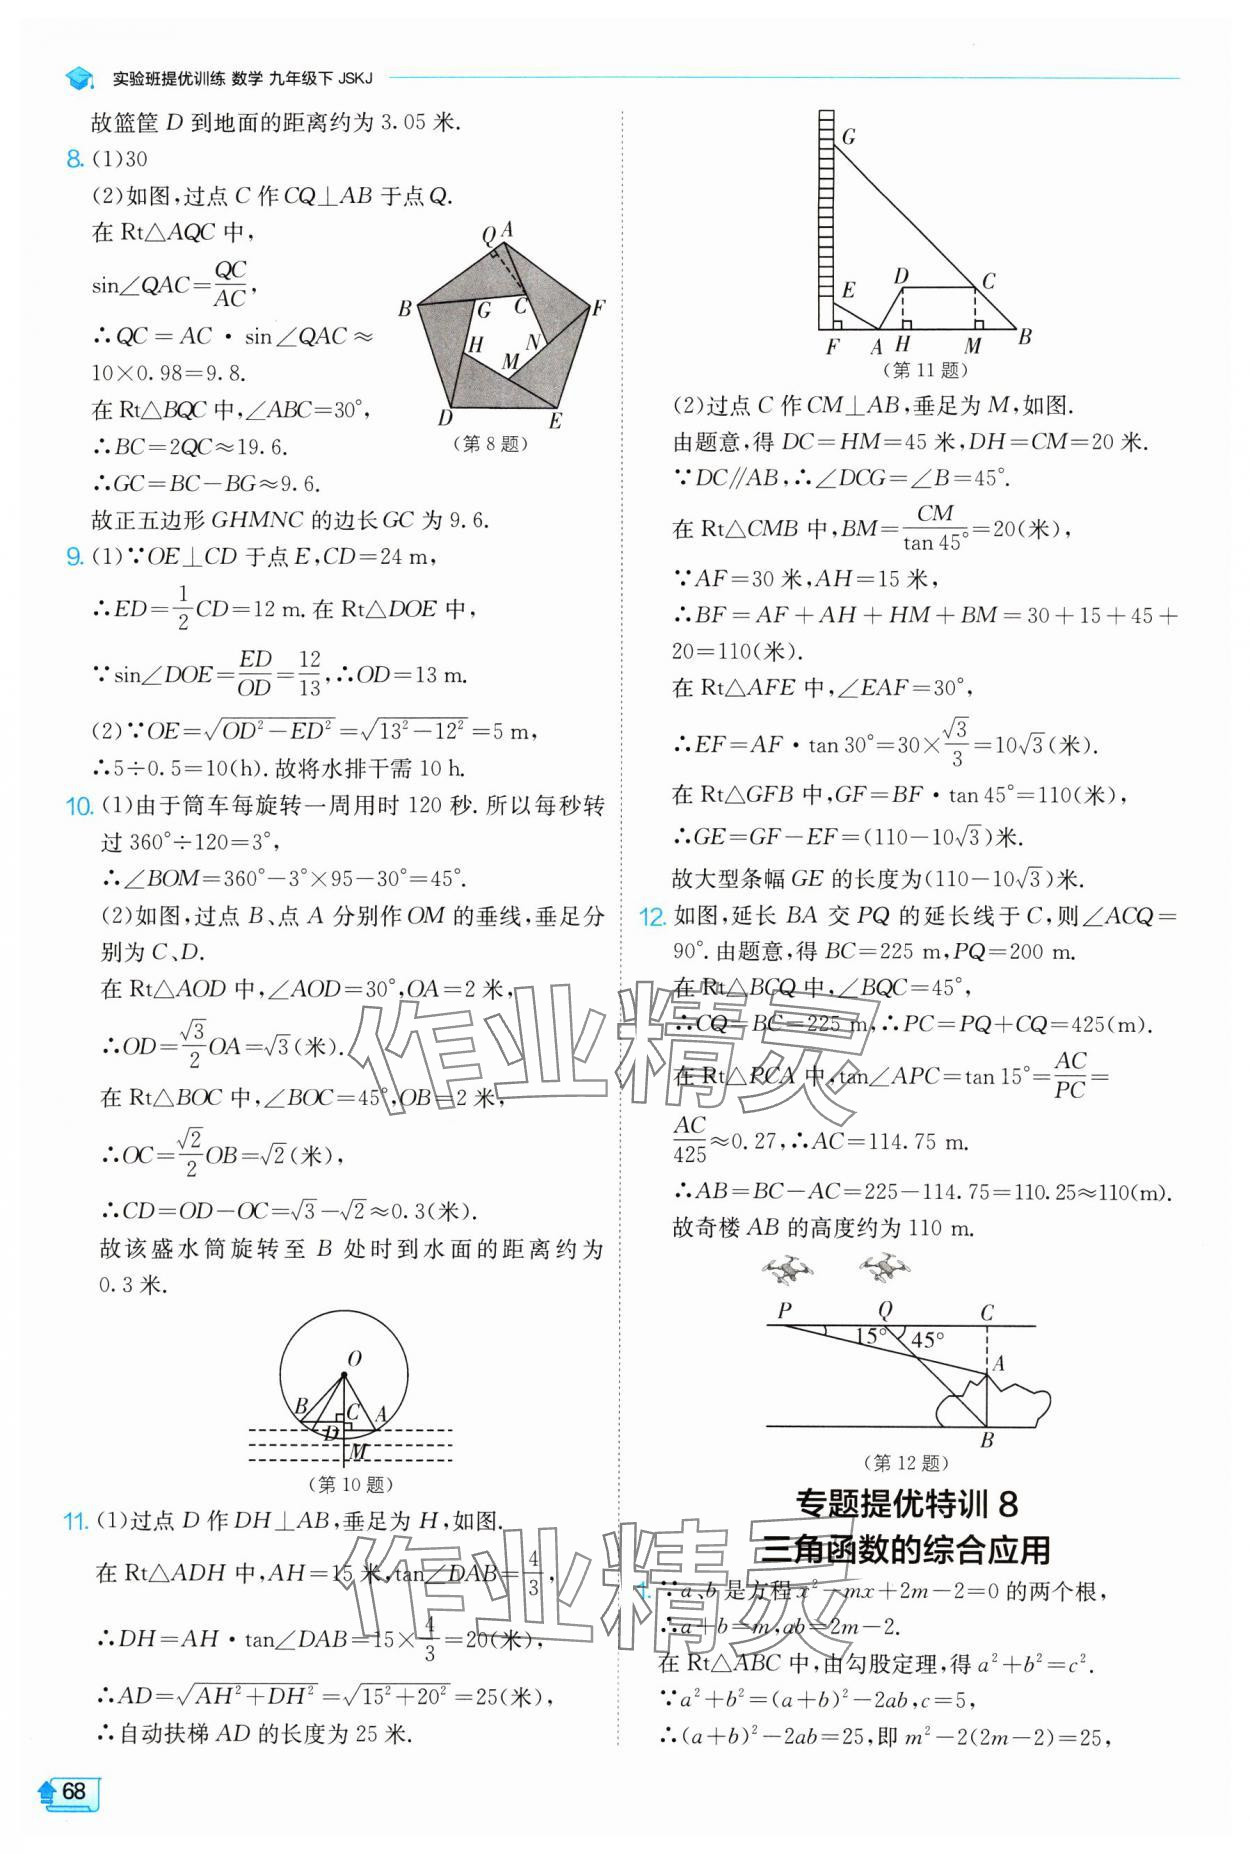 实验班提优训练 数学 九年级下 JSKJ
故篮筐 D 到地面的距离约为 3.05 米.
8. (1)30
(2)如图,过点 C 作 CQ⊥AB 于点 Q.
在 Rt△AQC 中,
sin∠QAC=QC/AC,
∴QC=AC·sin∠QAC≈
10×0.98=9.8.
在 Rt△BQC 中,∠ABC=30°,
∴BC=2QC≈19.6.
∴GC=BC-BG≈9.6.
Q A B G C F H N M D E
(第 8 题)
故正五边形 GHMNC 的边长 GC 为 9.6.
9. (1)∵OE⊥CD 于点 E,CD=24 m,
∴ED=1/2CD=12 m.在 Rt△DOE 中,
∵sin∠DOE=ED/OD=12/13,∴OD=13 m.
(2)∵OE=√(OD²-ED²)=√(13²-12²)=5 m,
∴5÷0.5=10(h).故将水排干需 10 h.
10. (1)由于筒车每旋转一周用时 120 秒.所以每秒转
过 360°÷120=3°,
∴∠BOM=360°-3°×95-30°=45°.
(2)如图,过点 B、点 A 分别作 OM 的垂线,垂足分
别为 C、D.
在 Rt△AOD 中,∠AOD=30°,OA=2 米,
∴OD=√3/2OA=√3(米).
在 Rt△BOC 中,∠BOC=45°,OB=2 米,
∴OC=√2/2OB=√2(米),
∴CD=OD-OC=√3-√2≈0.3(米).
故该盛水筒旋转至 B 处时到水面的距离约为
0.3 米.
O B C A D M
(第 10 题)
11. (1)过点 D 作 DH⊥AB,垂足为 H,如图.
在 Rt△ADH 中,AH=15 米,tan∠DAB=4/3,
∴DH=AH·tan∠DAB=15×4/3=20(米),
∴AD=√(AH²+DH²)=√(15²+20²)=25(米),
∴自动扶梯 AD 的长度为 25 米.
68
G D C E F A H M B
(第 11 题)
(2)过点 C 作 CM⊥AB,垂足为 M,如图.
由题意,得 DC=HM=45 米,DH=CM=20 米.
∵DC∥AB,∴∠DCG=∠B=45°.
在 Rt△CMB 中,BM=CM/tan 45°=20(米),
∵AF=30 米,AH=15 米,
∴BF=AF+AH+HM+BM=30+15+45+
20=110(米).
在 Rt△AFE 中,∠EAF=30°,
∴EF=AF·tan 30°=30×√3/3=10√3(米).
在 Rt△GFB 中,GF=BF·tan 45°=110(米),
∴GE=GF-EF=(110-10√3)米.
故大型条幅 GE 的长度为(110-10√3)米.
12. 如图,延长 BA 交 PQ 的延长线于 C,则∠ACQ=
90°.由题意,得 BC=225 m,PQ=200 m.
在 Rt△BCQ 中,∠BQC=45°,
∴CQ=BC=225 m,∴PC=PQ+CQ=425(m).
在 Rt△PCA 中,tan∠APC=tan 15°=AC/PC=
AC/425≈0.27,∴AC=114.75 m.
∴AB=BC-AC=225-114.75=110.25≈110(m).
故奇楼 AB 的高度约为 110 m.
P Q C 15° 45° A B
(第 12 题)
专题提优特训 8
三角函数的综合应用
1. ∵a、b 是方程 x²-mx+2m-2=0 的两个根,
∴a+b=m,ab=2m-2.
在 Rt△ABC 中,由勾股定理,得 a²+b²=c².
∵a²+b²=(a+b)²-2ab,c=5,
∴(a+b)²-2ab=25,即 m²-2(2m-2)=25,
作业精灵
作业精灵